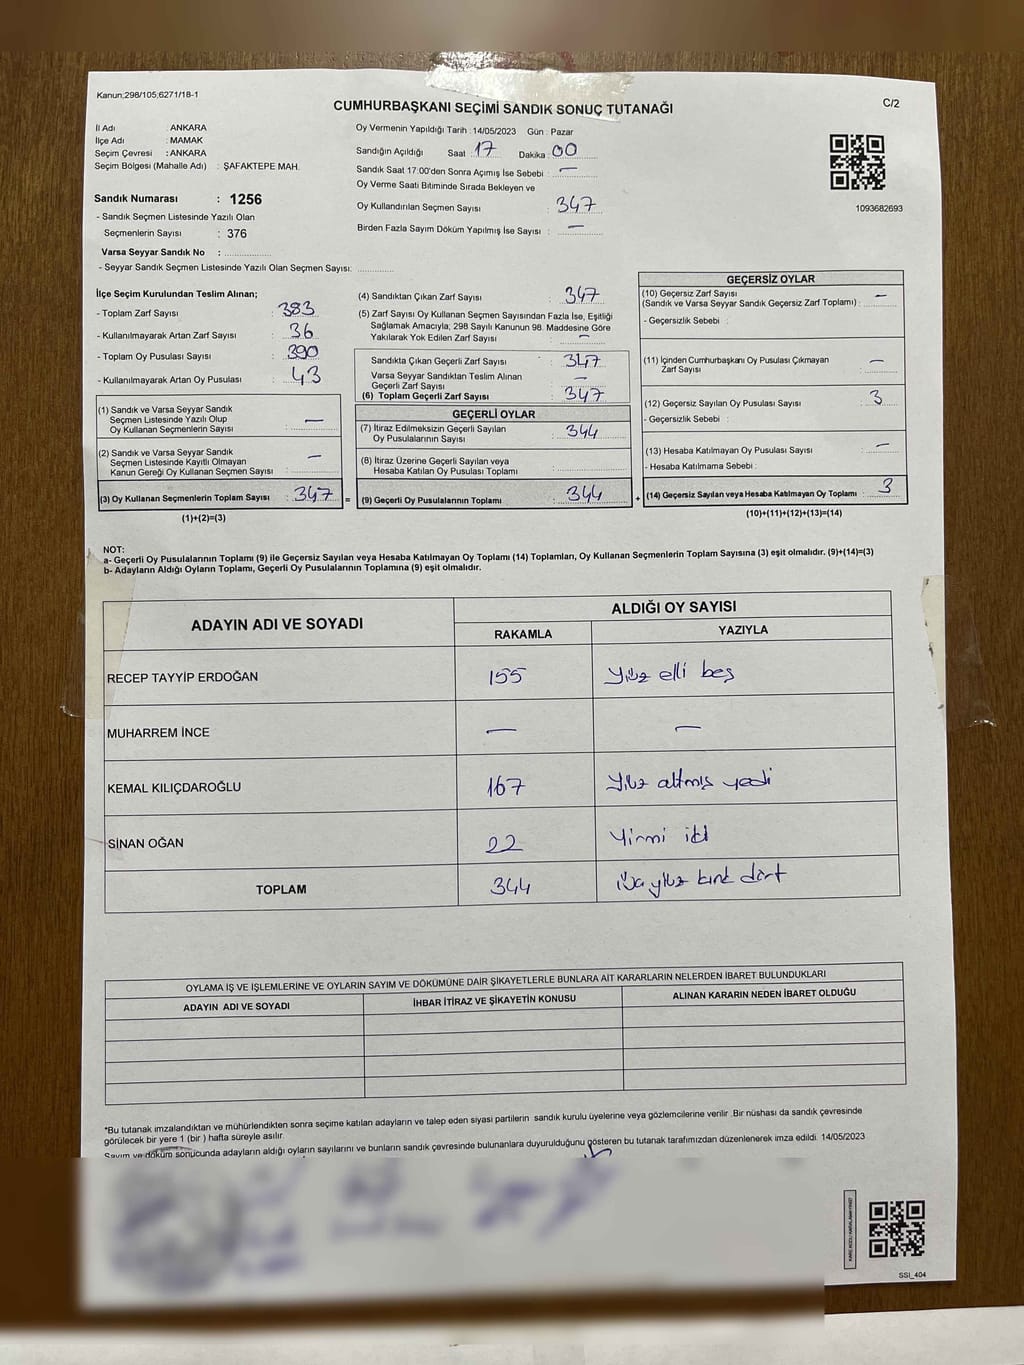 Kanun;298/105;6271/18-1
CUMHURBAŞKANI SEÇİMİ SANDIK SONUÇ TUTANAĞI
C/2
İl Adı : ANKARA
İlçe Adı : MAMAK
Seçim Çevresi : ANKARA
Seçim Bölgesi (Mahalle Adı) : ŞAFAKTEPE MAH.
Sandık Numarası : 1256
- Sandık Seçmen Listesinde Yazılı Olan
Seçmenlerin Sayısı : 376
Varsa Seyyar Sandık No :
- Seyyar Sandık Seçmen Listesinde Yazılı Olan Seçmen Sayısı:
Oy Vermenin Yapıldığı Tarih : 14/05/2023 Gün : Pazar
Sandığın Açıldığı Saat 17 Dakika : 00
Sandık Saat 17:00'den Sonra Açımış İse Sebebi : —
Oy Verme Saati Bitiminde Sırada Bekleyen ve
Oy Kullandırılan Seçmen Sayısı : 347
Birden Fazla Sayım Döküm Yapılmış İse Sayısı : —
1093682693
İlçe Seçim Kurulundan Teslim Alınan;
- Toplam Zarf Sayısı : 383
- Kullanılmayarak Artan Zarf Sayısı : 36
- Toplam Oy Pusulası Sayısı : 390
- Kullanılmayarak Artan Oy Pusulası : 43
(1) Sandık ve Varsa Seyyar Sandık
Seçmen Listesinde Yazılı Olup
Oy Kullanan Seçmenlerin Sayısı : —
(2) Sandık ve Varsa Seyyar Sandık
Seçmen Listesinde Kayıtlı Olmayan
Kanun Gereği Oy Kullanan Seçmen Sayısı : —
(3) Oy Kullanan Seçmenlerin Toplam Sayısı : 347 =
(1)+(2)=(3)
(4) Sandıktan Çıkan Zarf Sayısı : 347
(5) Zarf Sayısı Oy Kullanan Seçmen Sayısından Fazla İse, Eşitliği
Sağlamak Amacıyla, 298 Sayılı Kanunun 98. Maddesine Göre
Yakılarak Yok Edilen Zarf Sayısı : —
Sandıkta Çıkan Geçerli Zarf Sayısı : 347
Varsa Seyyar Sandıktan Teslim Alınan
Geçerli Zarf Sayısı : —
(6) Toplam Geçerli Zarf Sayısı : 347
GEÇERLİ OYLAR
(7) İtiraz Edilmeksizin Geçerli Sayılan
Oy Pusulalarının Sayısı : 344
(8) İtiraz Üzerine Geçerli Sayılan veya
Hesaba Katılan Oy Pusulası Toplamı :
(9) Geçerli Oy Pusulalarının Toplamı : 344 +
GEÇERSİZ OYLAR
(10) Geçersiz Zarf Sayısı
(Sandık ve Varsa Seyyar Sandık Geçersiz Zarf Toplamı) : —
- Geçersizlik Sebebi :
(11) İçinden Cumhurbaşkanı Oy Pusulası Çıkmayan
Zarf Sayısı : —
(12) Geçersiz Sayılan Oy Pusulası Sayısı : 3
- Geçersizlik Sebebi :
(13) Hesaba Katılmayan Oy Pusulası Sayısı : —
- Hesaba Katılmama Sebebi :
(14) Geçersiz Sayılan veya Hesaba Katılmayan Oy Toplamı : 3
(10)+(11)+(12)+(13)=(14)
NOT:
a- Geçerli Oy Pusulalarının Toplamı (9) ile Geçersiz Sayılan veya Hesaba Katılmayan Oy Toplamı (14) Toplamları, Oy Kullanan Seçmenlerin Toplam Sayısına (3) eşit olmalıdır. (9)+(14)=(3)
b- Adayların Aldığı Oyların Toplamı, Geçerli Oy Pusulalarının Toplamına (9) eşit olmalıdır.
ADAYIN ADI VE SOYADI
ALDIĞI OY SAYISI
RAKAMLA YAZIYLA
RECEP TAYYİP ERDOĞAN 155 Yüz elli beş
MUHARREM İNCE — —
KEMAL KILIÇDAROĞLU 167 Yüz altmış yedi
SİNAN OĞAN 22 Yirmi iki
TOPLAM 344 Üçyüz kırk dört
OYLAMA İŞ VE İŞLEMLERİNE VE OYLARIN SAYIM VE DÖKÜMÜNE DAİR ŞİKAYETLERLE BUNLARA AİT KARARLARIN NELERDEN İBARET BULUNDUKLARI
ADAYIN ADI VE SOYADI İHBAR İTİRAZ VE ŞİKAYETİN KONUSU ALINAN KARARIN NEDEN İBARET OLDUĞU
*Bu tutanak imzalandıktan ve mühürlendikten sonra seçime katılan adayların ve talep eden siyasi partilerin sandık kurulu üyelerine veya gözlemcilerine verilir .Bir nüshası da sandık çevresinde
görülecek bir yere 1 (bir ) hafta süreyle asılır.
Sayım ve döküm sonucunda adayların aldığı oyların sayılarını ve bunların sandık çevresinde bulunanlara duyurulduğunu gösteren bu tutanak tarafımızdan düzenlenerek imza edildi. 14/05/2023
SSI_404